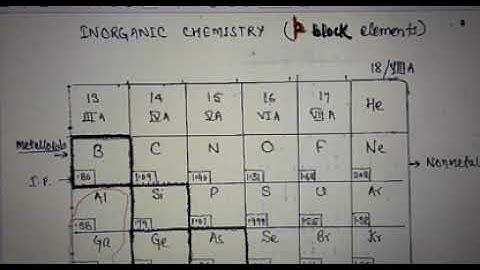 INORGANIC CHEMISTRY (p block elements)
18/VIIIA
13 14 15 16 17 He
IIIA IVA VA VIA VIIA
Metalloids B C N O F Ne Nonmetal
I.P. .80 1.09 1.40 1.31 1.68 2.08
Al Si P S Cl Ar
.58 .79 1.01 .999 1.25 1.52
Ga Ge As Se Br Kr